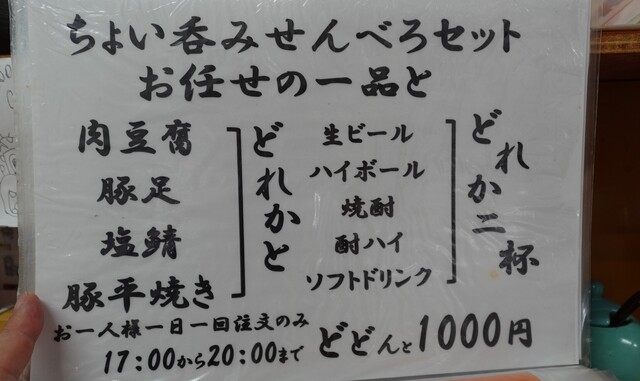 ちょい呑みせんべろセット
お任せの一品と
肉豆腐
豚足
塩鯖
豚平焼き
どれかと
生ビール
ハイボール
焼酎
酎ハイ
ソフトドリンク
どれか二杯
お一人様一日一回注文のみ
17:00から20:00まで
どどんと1000円